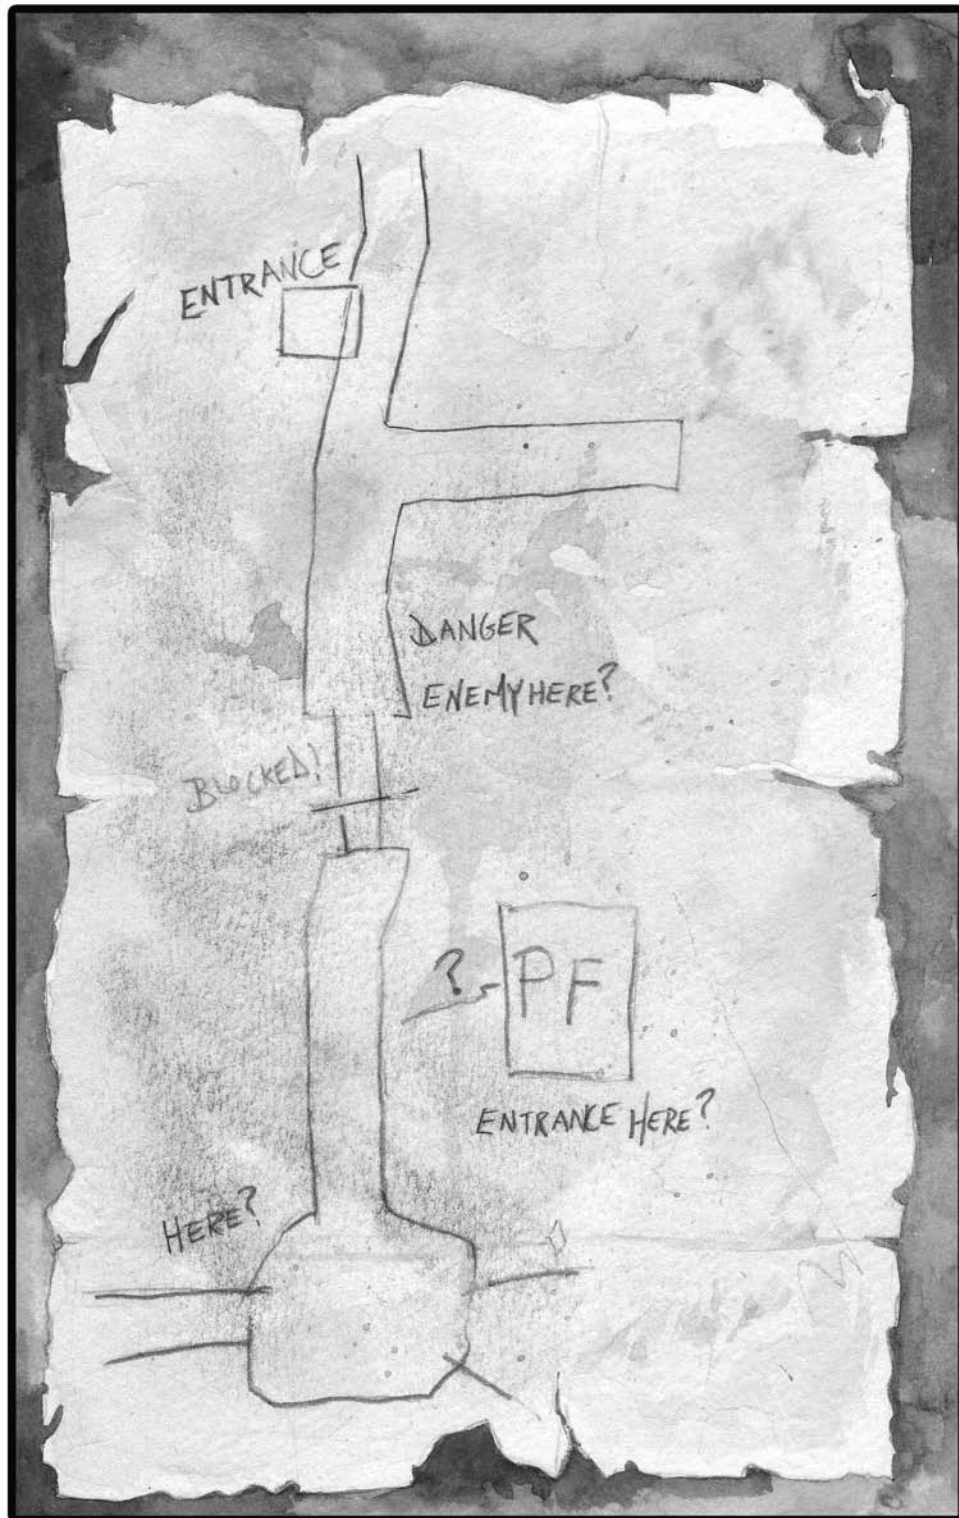 ENTRANCE
DANGER
ENEMY HERE?
BLOCKED!
?
PF
ENTRANCE HERE?
HERE?